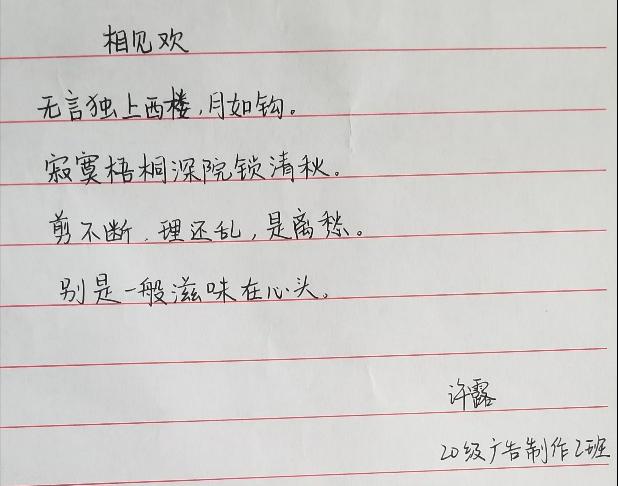 相见欢
无言独上西楼,月如钩。
寂寞梧桐深院锁清秋。
剪不断,理还乱,是离愁。
别是一般滋味在心头。
许露
20级广告制作2班